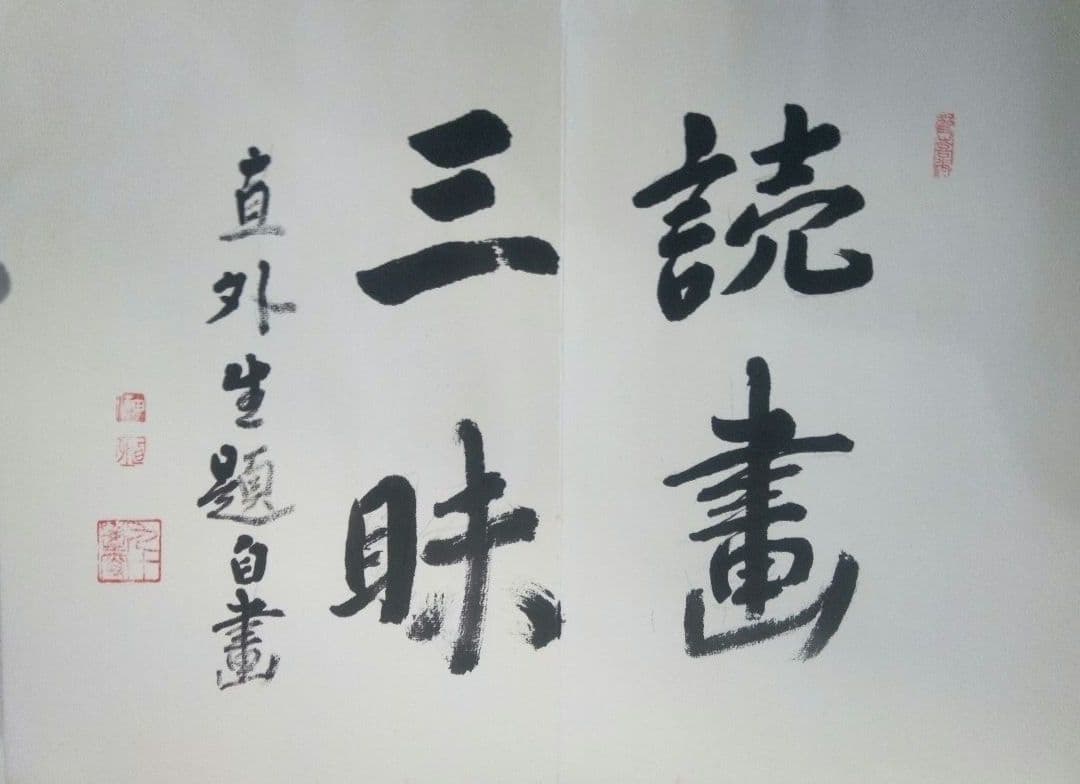 読畫
三昧
直外生題自畫